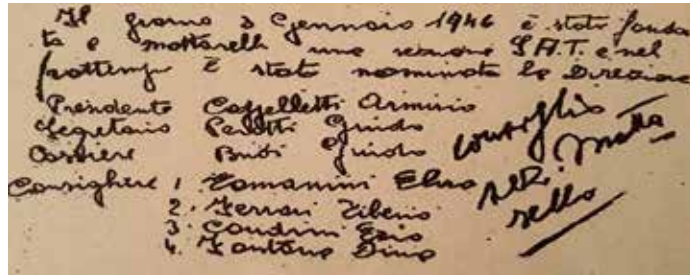 Il giorno 2 Gennaio 1946 è stato fonda
ta e mattarelli una sezione S.A.T. e nel
frattempo è stato nominata la Direzione
Presidente Cappelletti Arminio
Segretario Perotti Guido
Cassiere Guido
Consigliere 1. Tomanini Elio
2. Ferrari Tiberio
3. Ezio
4. Fontana Dino
consiglio
sez. Matta
rello